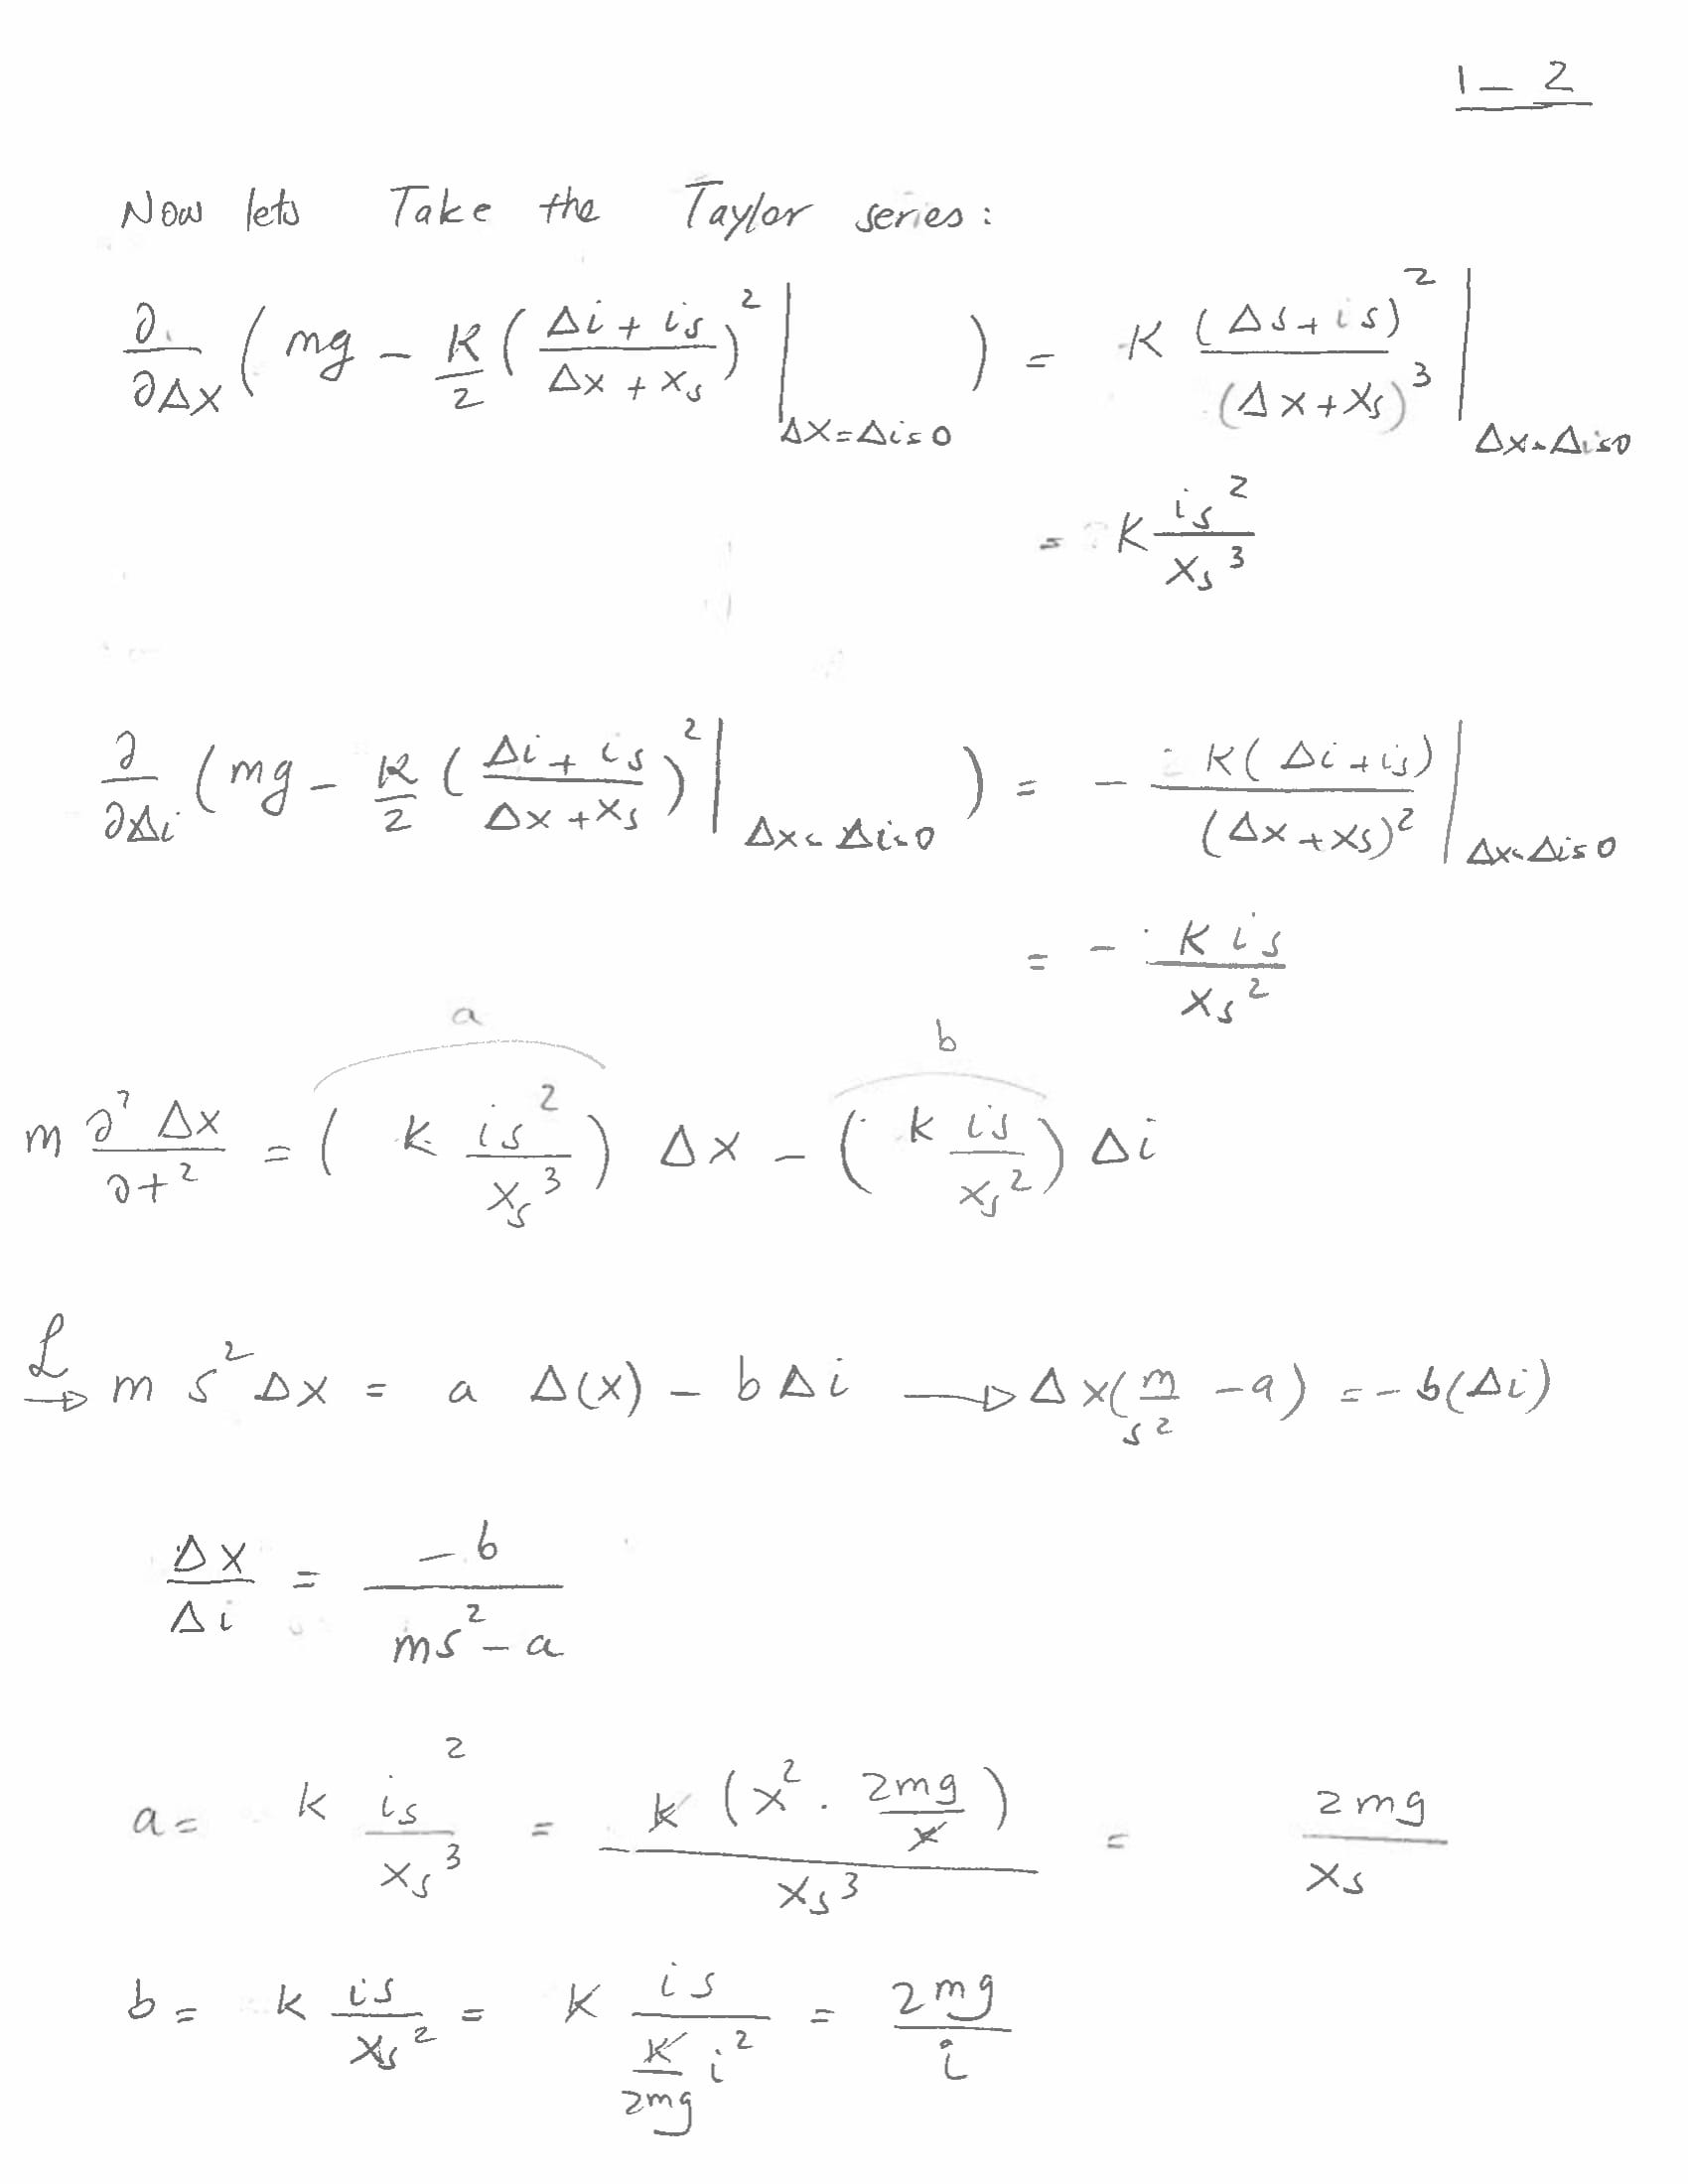 1 – 2
Now lets Take the Taylor series:
∂/∂Δx ( mg – K/2 ( (Δi + is)/(Δx + xs) )² |Δx=Δi=0 ) = K (Δs + is)²/(Δx + xs)³ |Δx=Δi=0
= K is²/xs³
∂/∂Δi ( mg – K/2 ( (Δi + is)/(Δx + xs) )² |Δx=Δi=0 ) = – K(Δi + is)/(Δx + xs)² |Δx=Δi=0
= – K is/xs²
a b
m ∂²Δx/∂t² = ( K is²/xs³ ) Δx – ( K is/xs² ) Δi
ℒ→ m s² Δx = a Δ(x) – b Δi → Δx( m/s² – a) = – b(Δi)
Δx/Δi = –b/(ms² – a)
a = K is²/xs³ = K (x² · 2mg/K)/xs³ = 2mg/xs
b = K is/xs² = K is/(K/2mg i²) = 2mg/i